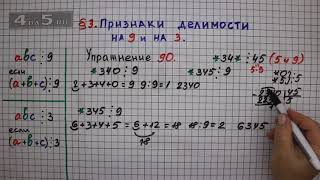 4 на 5.ru
§3. Признаки делимости
на 9 и на 3.
Упражнение 90.
*34* ⋮ 45 (5 и 9)
5·9
abc ⋮ 9
если
(a+b+c) ⋮ 9
*340 ⋮ 9
*345 ⋮ 9
2+3+4+0=9 9:9=1 2340
abc ⋮ 3
если
(a+b+c) ⋮ 3
*345 ⋮ 9
6+3+4+5=6+12=18 18:9=2 6345
18